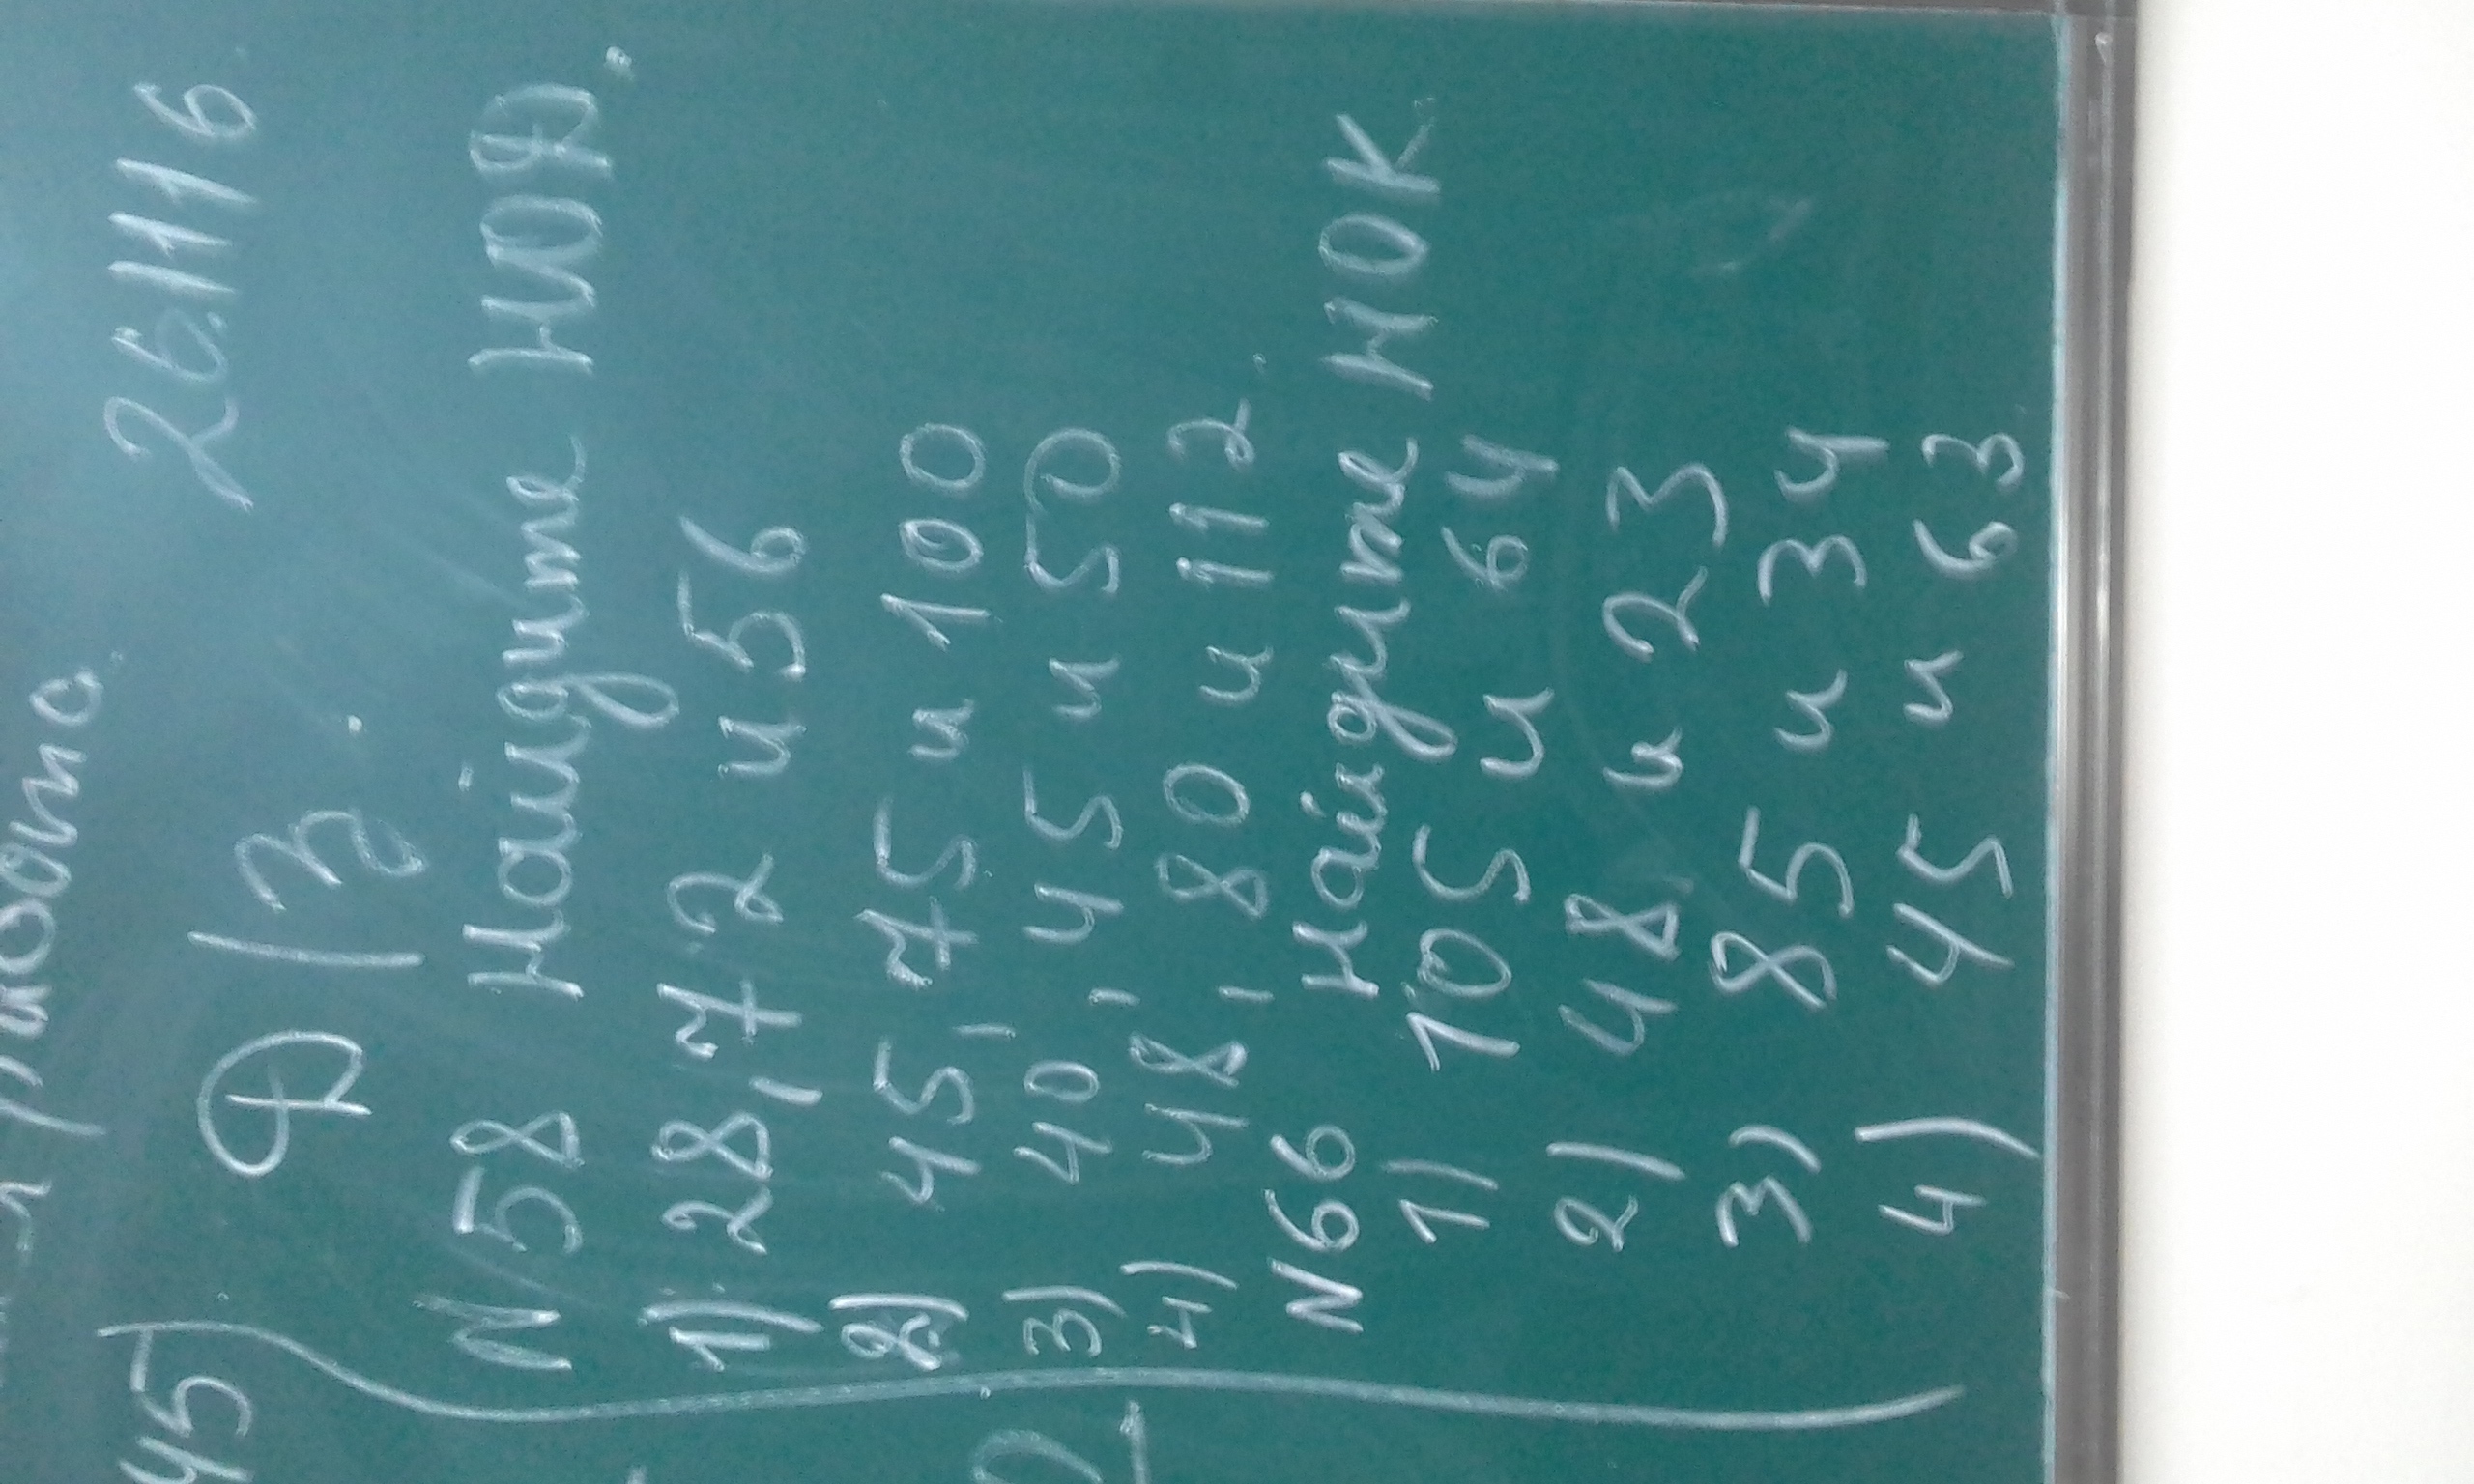 работа.
45)
26.11 16
Д/З.
N 58 Найдите НОД.
1) 28, 72 и 56
2) 45, 75 и 100
3) 40, 45 и 50
4) 48, 80 и 112.
N66 Найдите НОК.
1) 105 и 64
2) 48 и 23
3) 85 и 34
4) 45 и 63